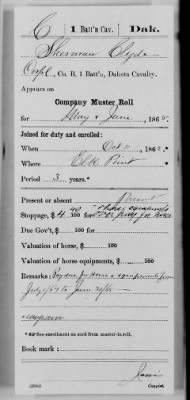 C 1 Batt'n Cav. Dak.
Sherman Clyde
Corp'l, Co. B, 1 Batt'n, Dakota Cavalry.
Appears on
Company Muster Roll
for May & June, 1865.
Joined for duty and enrolled:
When Oct 11, 1862.
Where Elk Point
Period 3 years.*
Present or absent Present
Stoppage, $ 100 for
Due Gov't, $ 100
Valuation of horse, $ 100
Valuation of horse equipments, $ 100
Remarks: Pay due for Horse & equipments from
July 1/64 to June 30/65
*See enrollment on card from muster-in roll.
Book mark:
Copyist.